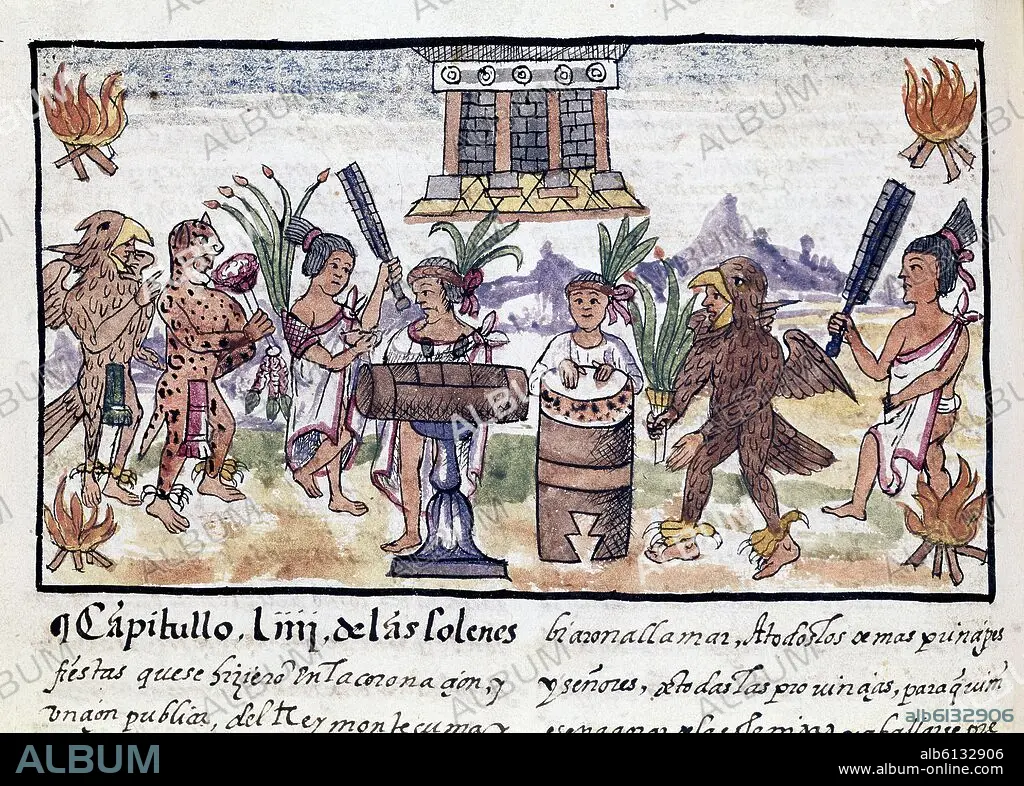 ¶ Capitullo. Liiij. de las solenes
fiestas que se hizierõ En la coronaçion, y
vnçion publica, del Rey montecuma y
biaron allamar, A todos los demas prinçipes
y señores, de todas las prouinçias, para q̃ uin
ALBUM
alb6132906
alb6132906
album-online.com